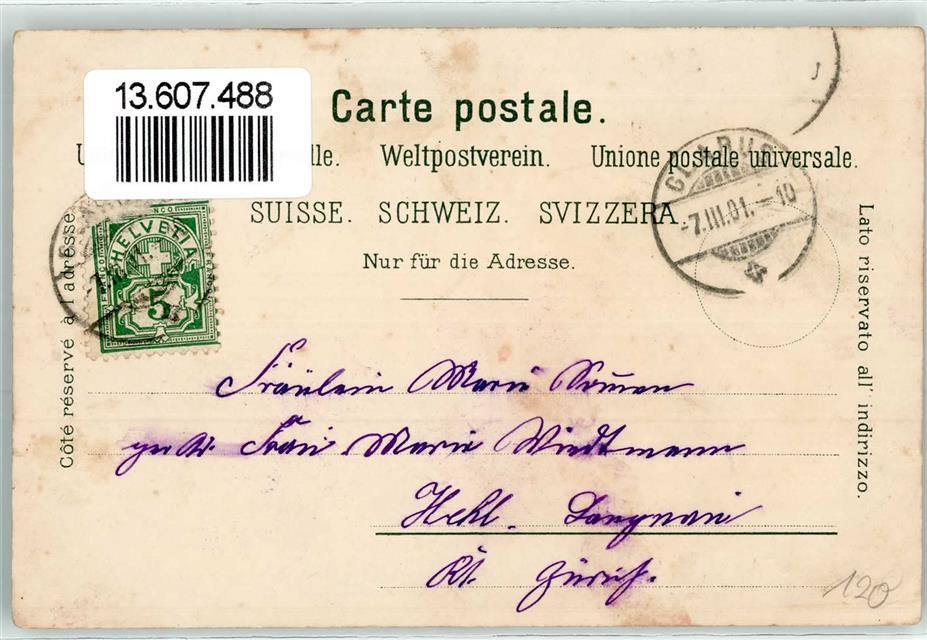 13.607.488
Carte postale.
lle. Weltpostverein. Unione postale universale.
SUISSE. SCHWEIZ. SVIZZERA.
Nur für die Adresse.
Côté réservé à l'adresse.
Lato riservato all' indirizzo.
GLARUS
-7.III.01.-10
FRANCO HELVETIA FRANCO
5
Fräulein Marie
Frau Marie Wiedtmann
Langnau
Kt. Zürich.
120